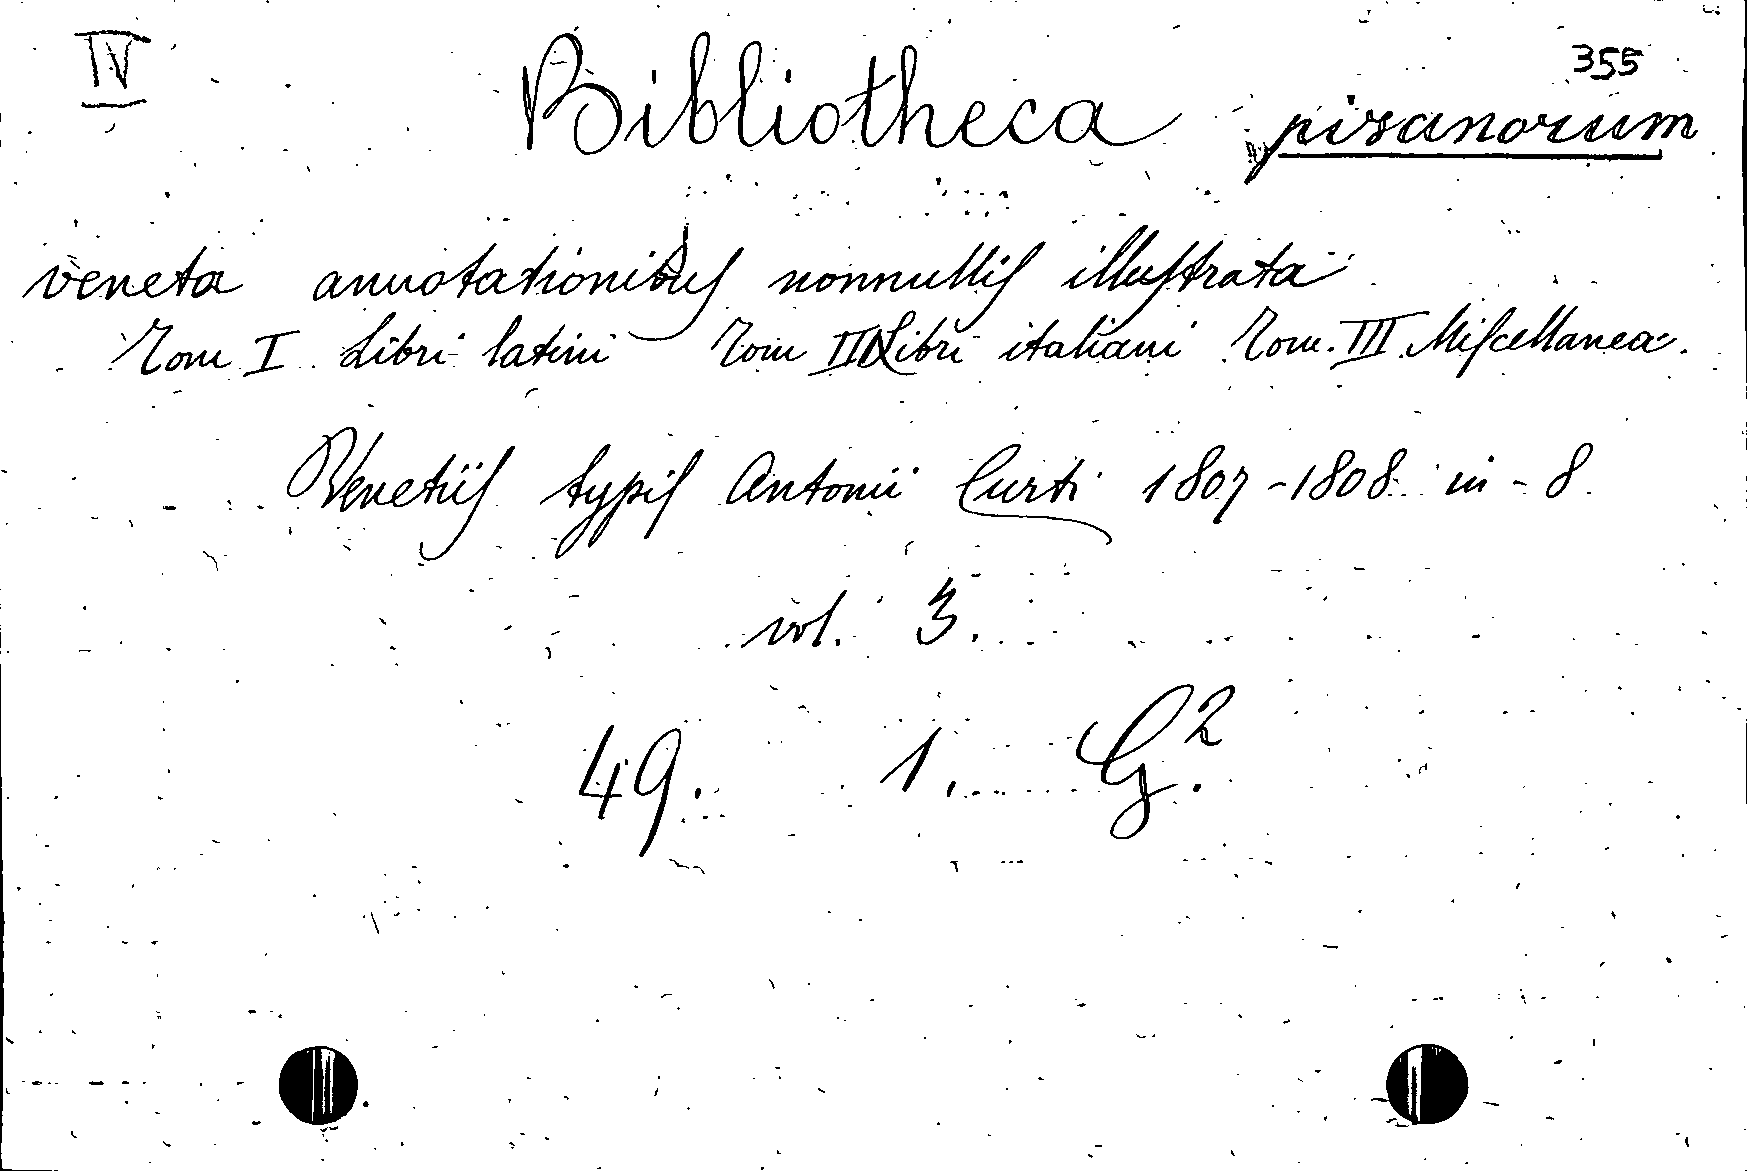 IV
355
Bibliotheca pisanorum
veneta annotationibus nonnullis illustrata
Tom I Libri latini Tom II Libri italiani Tom. III Miscellanea.
Venetiis typis Antonii Curti 1807-1808 in-8
vol. 3.
49. 1. G².